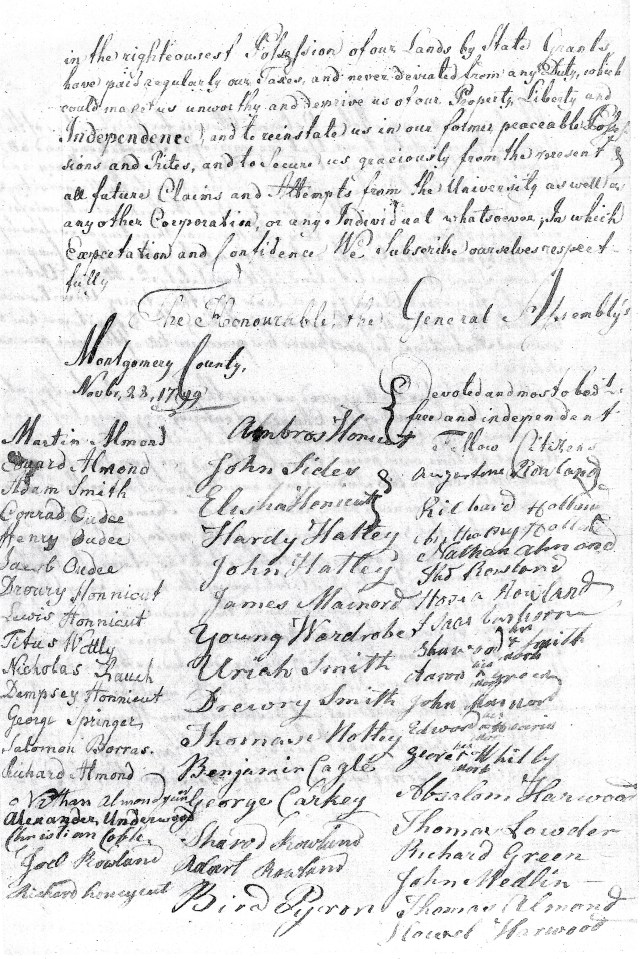 in the righteousest Possession of our Lands by State Grants,
have paid regularly our Taxes, and never deviated from any Duty, which
could make us unworthy and deprive us of our Property, Liberty and
Independence, and to reinstate us in our former peaceable Posses-
sions and Rites, and to Secure us graciously from the present &
all future Claims and Attempts from the University as well as
any other Corporation, or any Individual whatsoever; In which
Expectation and Confidence We Subscribe ourselves respect-
fully
The Honourable, the General Assembly's
Montgomery County,
Novbr, 23, 1799
Devoted and most
free and independent
Fellow Citizens
Martin Almond
Almond
Adam Smith
Conrad Eudee
Henry Eudee
Jacob Eudee
Droury Honnicut
Lewis Honnicut
Titus
Nicholas Rauch
Dempsey Honnicut
George Springer
Salomon Borras.
Richard Almond
Nathan Almond
Alexander Underwood
Christian Coble
Joel Rowland
Richard honeycut
Ambros
John Sides
Elisha Honicutt
Hardy Hatley
John Hatley
James Mainord
Young Wardrober
Uriah Smith
Drewry Smith
Thomas Hatley
Benjamin Cagle
George Carkey
Sharod Rowland
Rowland
Bird Pyron
Augustine Rowland
Richard
Nathan Almond
Thos Rowland
Hosea Rowland
Isaac
Smith
his mark
Aaron Green
John
his mark
George Whilby
his mark
Absalom Harwood
Thomas Lowder
Richard Green
John Medlin
Thomas Almond
Howel Harwood